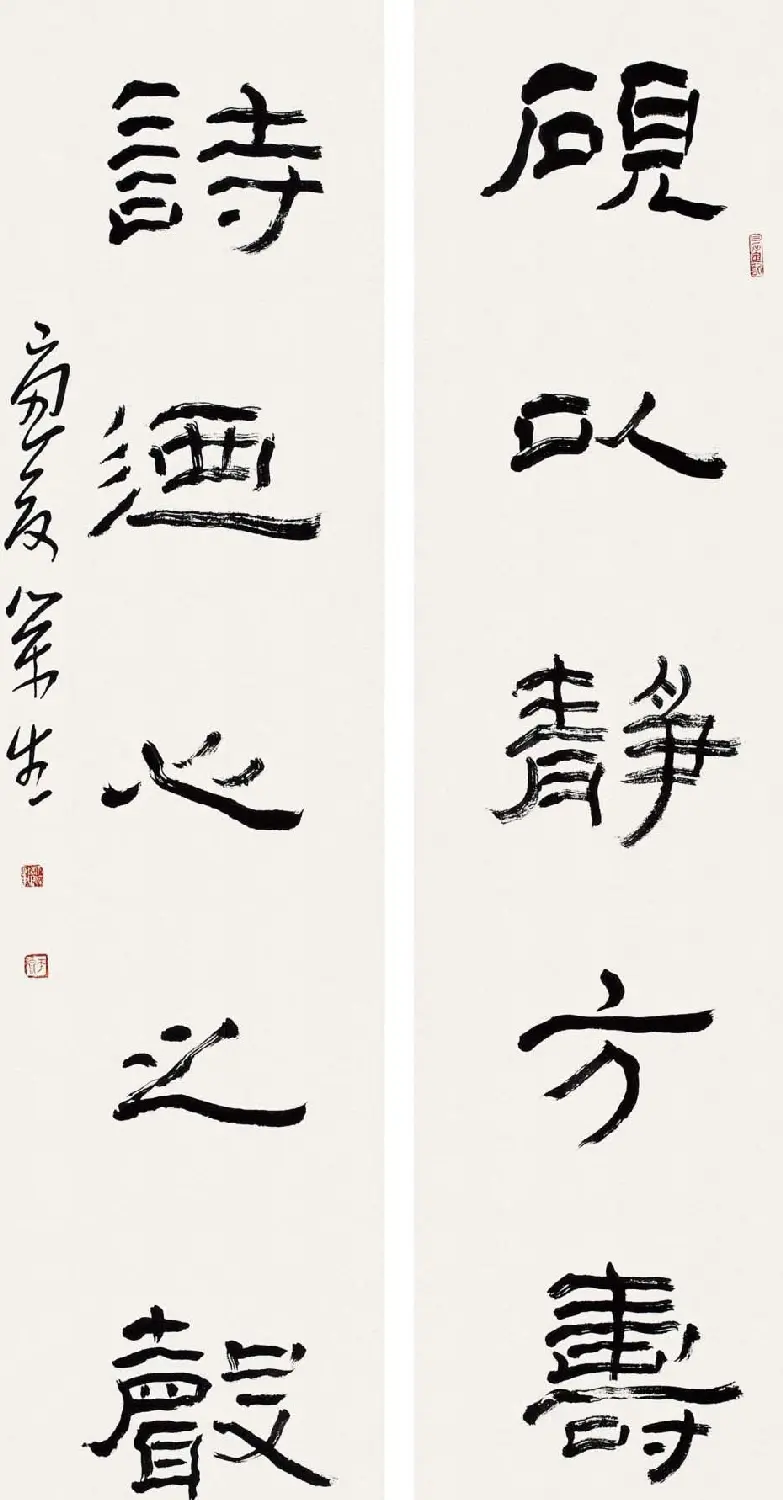 硯以靜方壽
詩迺心之聲